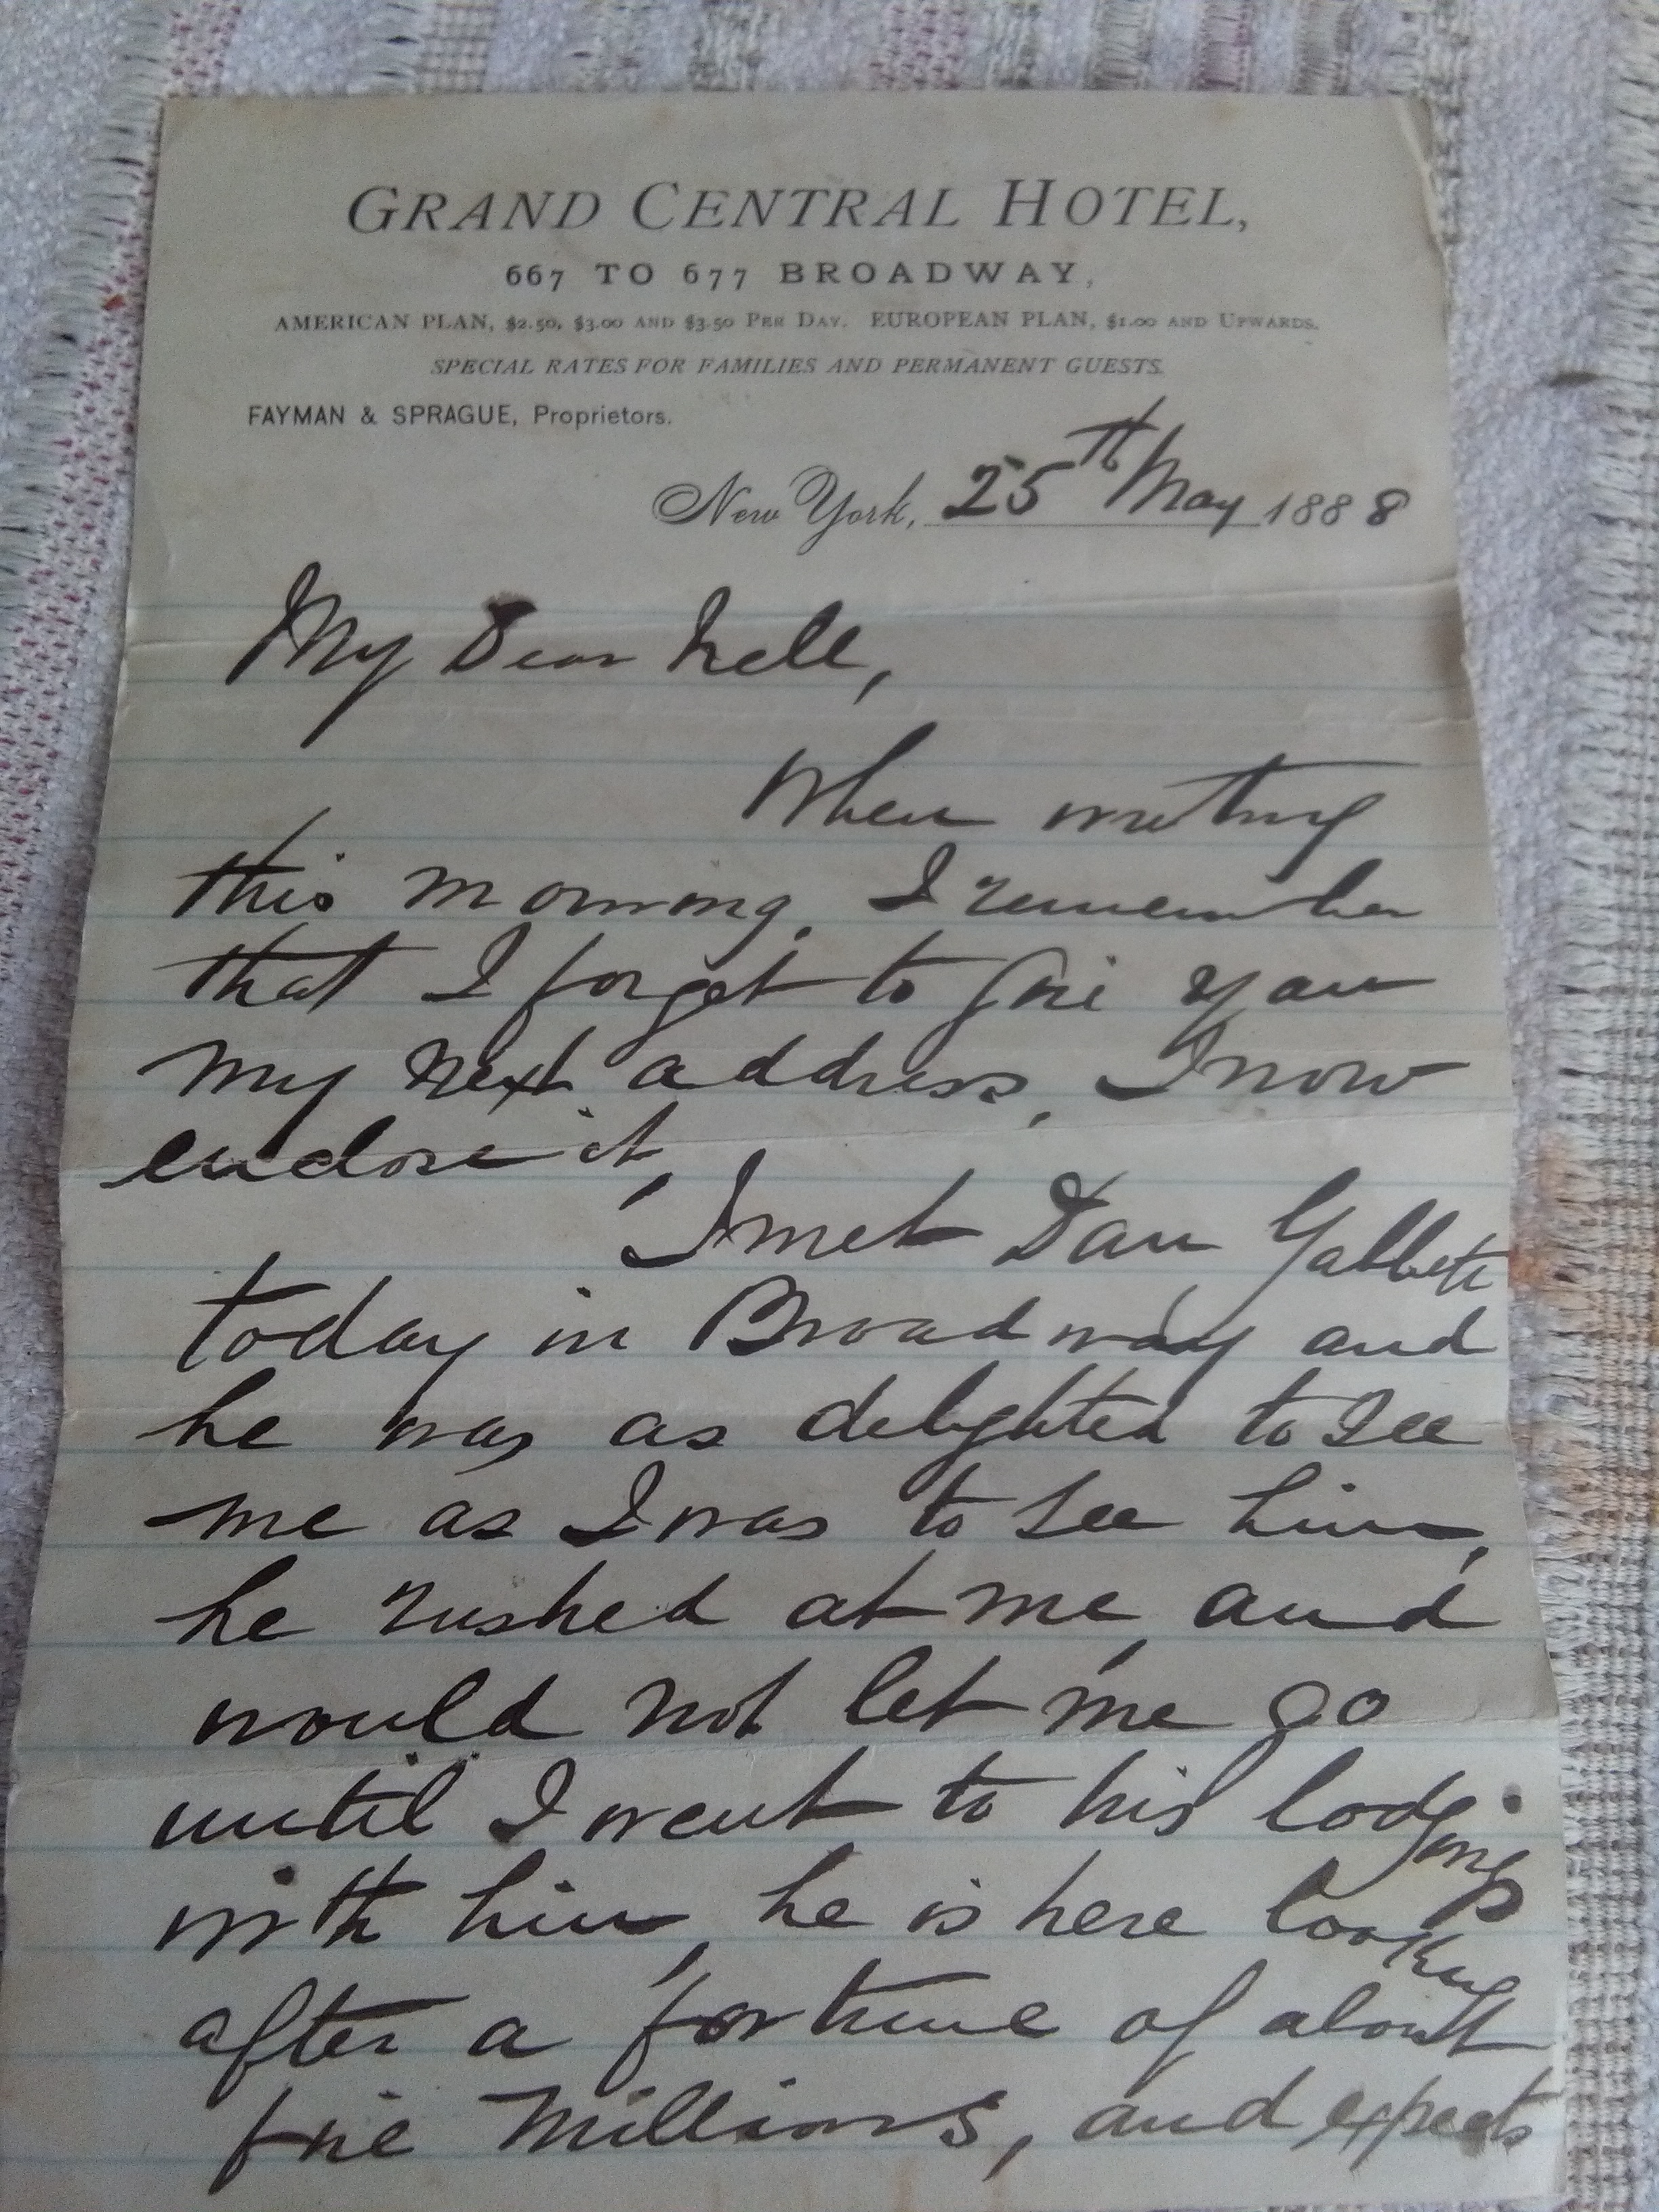 GRAND CENTRAL HOTEL,
667 TO 677 BROADWAY,
AMERICAN PLAN, $2.50, $3.00 AND $3.50 PER DAY. EUROPEAN PLAN, $1.00 AND UPWARDS.
SPECIAL RATES FOR FAMILIES AND PERMANENT GUESTS.
FAYMAN & SPRAGUE, Proprietors.
New York, 25th May 1888
My Dear Nell,
When writing
this morning, I remember
that I forget to give you
my next address, I now
enclose it,
I met Dan Gabbett
today in Broadway and
he was as delighted to see
me as I was to see him,
he rushed at me, and
would not let me go
until I went to his lodging
with him, he is here looking
after a fortune of about
five Millions, and expects